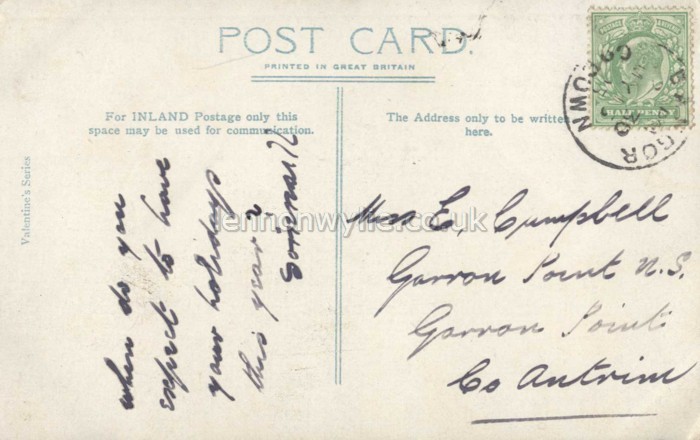 POST CARD.
PRINTED IN GREAT BRITAIN
For INLAND Postage only this
space may be used for communication.
The Address only to be written
here.
Valentine's Series
when do you
expect to have
your holidays
this year?
HALFPENNY
Miss E. Campbell
Garron Point N.S.
Garron Point
Co Antrim
lennonwylie.co.uk